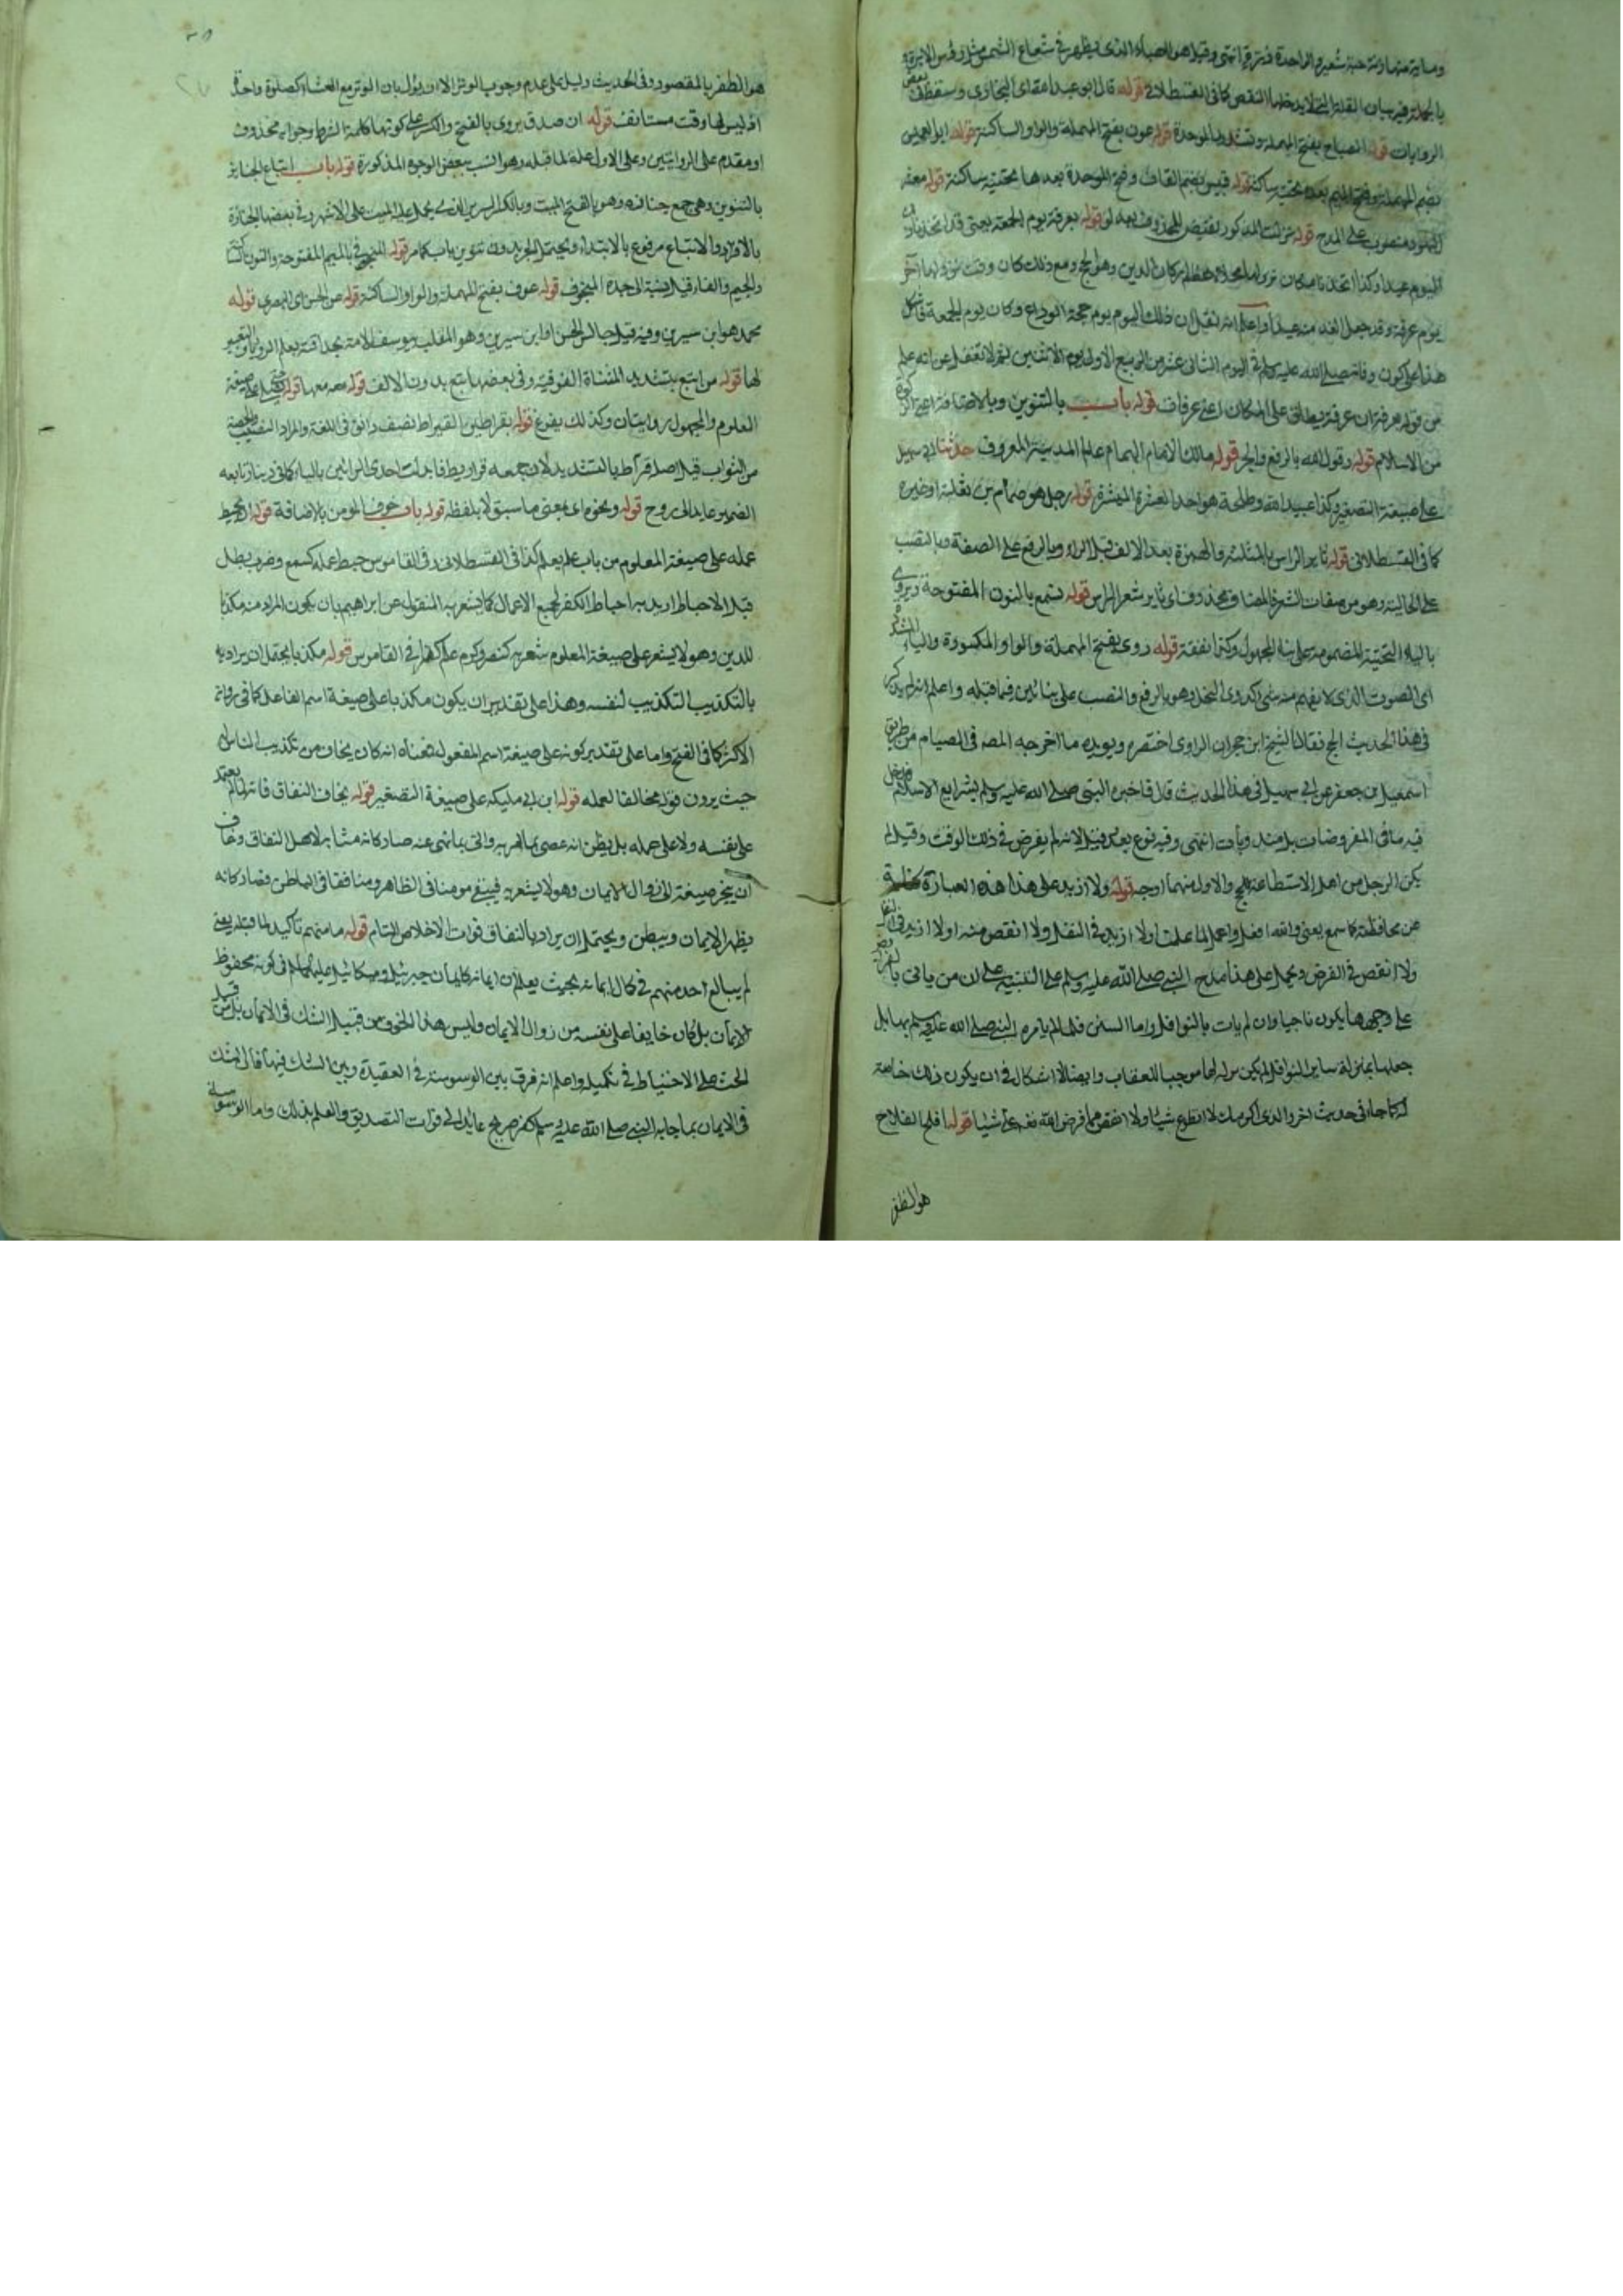 وماية منها وزنة حبة شعير والواحدة ذرة انتهى وقيل هو الهباء الذى يظهر فى شعاع الشمس مثل رؤس الابرة
بالجملة فيه بيان القلة التى لا يدخلها النقص كما فى القسطلانى قوله قال ابو عبد الله اى البخارى وسقط فى بعض
الروايات قوله الصباح بفتح المهملة وتشديد الموحدة قوله عون بفتح المهملة والواو الساكنة قوله ابو العميس
بضم المهملة وفتح الميم بعده تحتية ساكنة قوله قيس بضم القاف وفتح الموحدة بعدها تحتية ساكنة قوله معشر
اليهود منصوب على المدح قوله نزلت المذكور نقيض المحذوف بعد لو قوله بعرفة يوم الجمعة يعنى قد اتخذنا ذلك
اليوم عيدا وكذا اتخذنا مكان نزولها محلا معظم اركان الدين وهو الحج ومع ذلك كان وقت نزولها آخر
يوم عرفة وقد جعل الغد منه عيدا واعلم انه نقل ان ذلك اليوم يوم حجة الوداع وكان يوم الجمعة فاشكل
هذا على كون وفاته صلى الله عليه وسلم فى اليوم الثانى عشر من الربيع الاول يوم الاثنين ثم لا تغفل عن انه علم
من قوله عرفة ان عرفة يطلق على المكان اعنى عرفات قوله باب بالتنوين وبالاضافة الزكوة
من الاسلام قوله وقول الله بالرفع والجر قوله مالك الامام الهمام عالم المدينة المعروف حدثنا ابى سهيل
على صيغة التصغير وكذا عبيد الله وطلحة هو احد العشرة المبشرة قوله رجل هو ضمام بن ثعلبة او غيره
كما فى القسطلانى قوله ثاير الراس بالمثلثة والهمزة بعد الالف قبل الراء وبالرفع على الصفة وبالنصب
على الحالية وهو من صفات الشعر فالمضاف محذوف اى ثاير شعر الراس قوله نسمع بالنون المفتوحة ويروى
بالياء التحتية المضمومة على بناء المجهول وكذا نفقه قوله دوى بفتح المهملة والواو المكسورة والياء المشددة
اى الصوت الذى لا يفهم منه شئ كدوى النحل وهو بالرفع والنصب على بنائين فيما قبله واعلم انه لم يذكر
فى هذا الحديث الحج فقال الشيخ ابن حجر ان الراوى اختصره ويويده ما اخرجه المصـ فى الصيام من طريق
اسمعيل بن جعفر عن ابى سهيل فى هذا الحديث قال فاخبره النبى صلى الله عليه وسلم بشرايع الاسلام فدخل
فيه باقى المفروضات بل مندوبات انتهى وفيه نوع بعد فقيل لانه لم يفرض فى ذلك الوقت وقيل لم
يكن الرجل من اهل الاستطاعة للحج والاول منهما اوجه قوله ولا ازيد على هذا هذه العبارة كناية
عن محافظته كما سمع يعنى والله افعل واعمل لما علمت اولا ازيد فى النفل ولا انقص منه اولا ازيد فى النفل
ولا انقص فى الفرض ويحمل على هذا مدح النبى صلى الله عليه وسلم على التنبيه على ان من ياتى بالفرائض
على وجهها يكون ناجيا وان لم يات بالنوافل واما السنن فلما لم يامره النبى صلى الله عليه وسلم بها بل
جعلها بمنزلة ساير النوافل لم يكن تركه لها موجبا للعقاب وايضا لا اشكال فى ان يكون ذلك خاصة
له كما جاء فى حديث اخر والذى اكرمك لا اتطوع شيئا ولا انقص مما فرض الله تعالى على شيئا قوله افلح الفلاح
هو الظفر
هو الظفر بالمقصود وفى الحديث دليل على عدم وجوب الوتر الا ان يؤل بان الوتر مع العشاء كصلوة واحدة
اذ ليس لها وقت مستانف قوله ان صدق يروى بالفتح والكسر على كونها كلمة الشرط وجوابه محذوف
او مقدم على الروايتين وعلى الاول علة لما قبله وهو انسب ببعض الوجوه المذكورة قوله باب اتباع الجنايز
بالتنوين وهى جمع جنازة وهو بالفتح الميت وبالكسر السرير الذى يحمل عليه الميت على الاشهر وفى بعضها الجنازة
بالافراد والاتباع مرفوع بالابتداء ويحتمل الجر بدون تنوين باب كما مر قوله المنجوفى بالميم المفتوحة والنون الساكنة
والجيم والفاء قيل نسبة الى جده المنجوف قوله عوف بفتح المهملة والواو الساكنة قوله عن الحسن اى البصرى قوله
محمد هو ابن سيرين وفيه قيل جالس الحسن او ابن سيرين وهو الملقب بيوسف الامة لحذاقته بعلم الرويا والتعبير
لها قوله من اتبع بتشديد المثناة الفوقية وفى بعضها تبع بدون الالف قوله معه معها قوله يصلى على صيغة
المعلوم والمجهول روايتان وكذلك يفرغ قوله بقراطين القيراط نصف دانق فى اللغة والمراد النصيب والحصة
من الثواب قيل اصله قراط بالتشديد لان جمعه قراريط فابدلت احدى الرائين بالياء كما فى دينار تابعه
الضمير عايد الى روح قوله ونحوه اى بمعنى ما سبق لا بلفظه قوله باب خوف المومن بالاضافة قوله ان يحبط
عمله على صيغة المعلوم من باب علم يعلم كذا فى القسطلانى وفى القاموس حبط عمله كسمع وضرب بطل
قيل الاحباط اريد به احباط الكفر لجميع الاعمال كما يشعر به المنقول عن ابراهيم بان يكون المراد منه مكذبا
للدين وهو لا يشعر على صيغة المعلوم شعر به كنصر وكرم علم كما فى القاموس قوله مكذبا يحتمل ان يراد به
بالتكذيب التكذيب لنفسه وهذا على تقدير ان يكون مكذبا على صيغة اسم الفاعل كما فى رواية
الاكثر كما فى الفتح واما على تقدير كونه على صيغة اسم المفعول فمعناه انه كان يخاف من تكذيب الناس له
حيث يرون قوله مخالفا لعمله قوله ابن ابى مليكة على صيغة التصغير قوله يخاف النفاق فانه لم يعتمد
على نفسه ولا على عمله بل يظن انه عصى بما امر به واتى بما نهى عنه صار كانه مشابه لاهل النفاق وخاف
ان ينجر صيغة الى زوال الايمان وهو لا يشعر به فيبقى مومنا فى الظاهر ومنافقا فى الباطن فصار كانه
يظهر الايمان ويبطن ويحتمل ان يراد بالنفاق فوات الاخلاص التام قوله ما منهم تاكيد لما قبله يعنى
لم يبالغ احد منهم فى كمال ايمانه بحيث يعلم ان ايمانه كايمان جبرئيل وميكائيل عليهما السلام فى كونه محفوظ
الايمان بل كان خايفا على نفسه من زوال الايمان وليس هذا الخوف من قبيل الشك فى الايمان بل من قبيل
الحث على الاحتياط فى تكميله واعلم انه فرق بين الوسوسة فى العقيدة وبين الشك فيها فان الشك
فى الايمان بما جاء به النبى صلى الله عليه وسلم كفر صريح عايد الى فوات التصديق والعلم بذلك واما الوسوسة